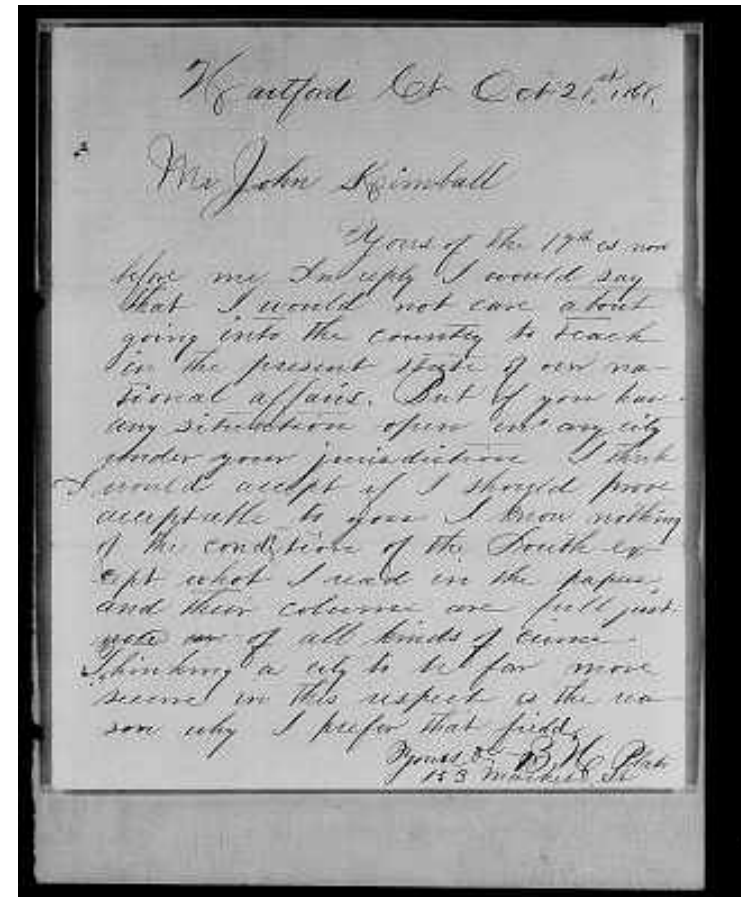 Hartford Ct Oct 21st 
Mr John Kimball
Yours of the 17th is now
before me In reply I would say
that I would not care about
going into the country to teach
in the present state of our na-
tional affairs. But if you have
any situation open in any city
under your jurisdiction I think
I would accept if I should prove
acceptable to you I know nothing
of the condition of the South ex-
cept what I read in the papers,
and their columns are full just
now of all kinds of crime.
Thinking a city to be far more
secure in this respect is the rea-
son why I prefer that field.
Yours &c B. H.
153 Market St